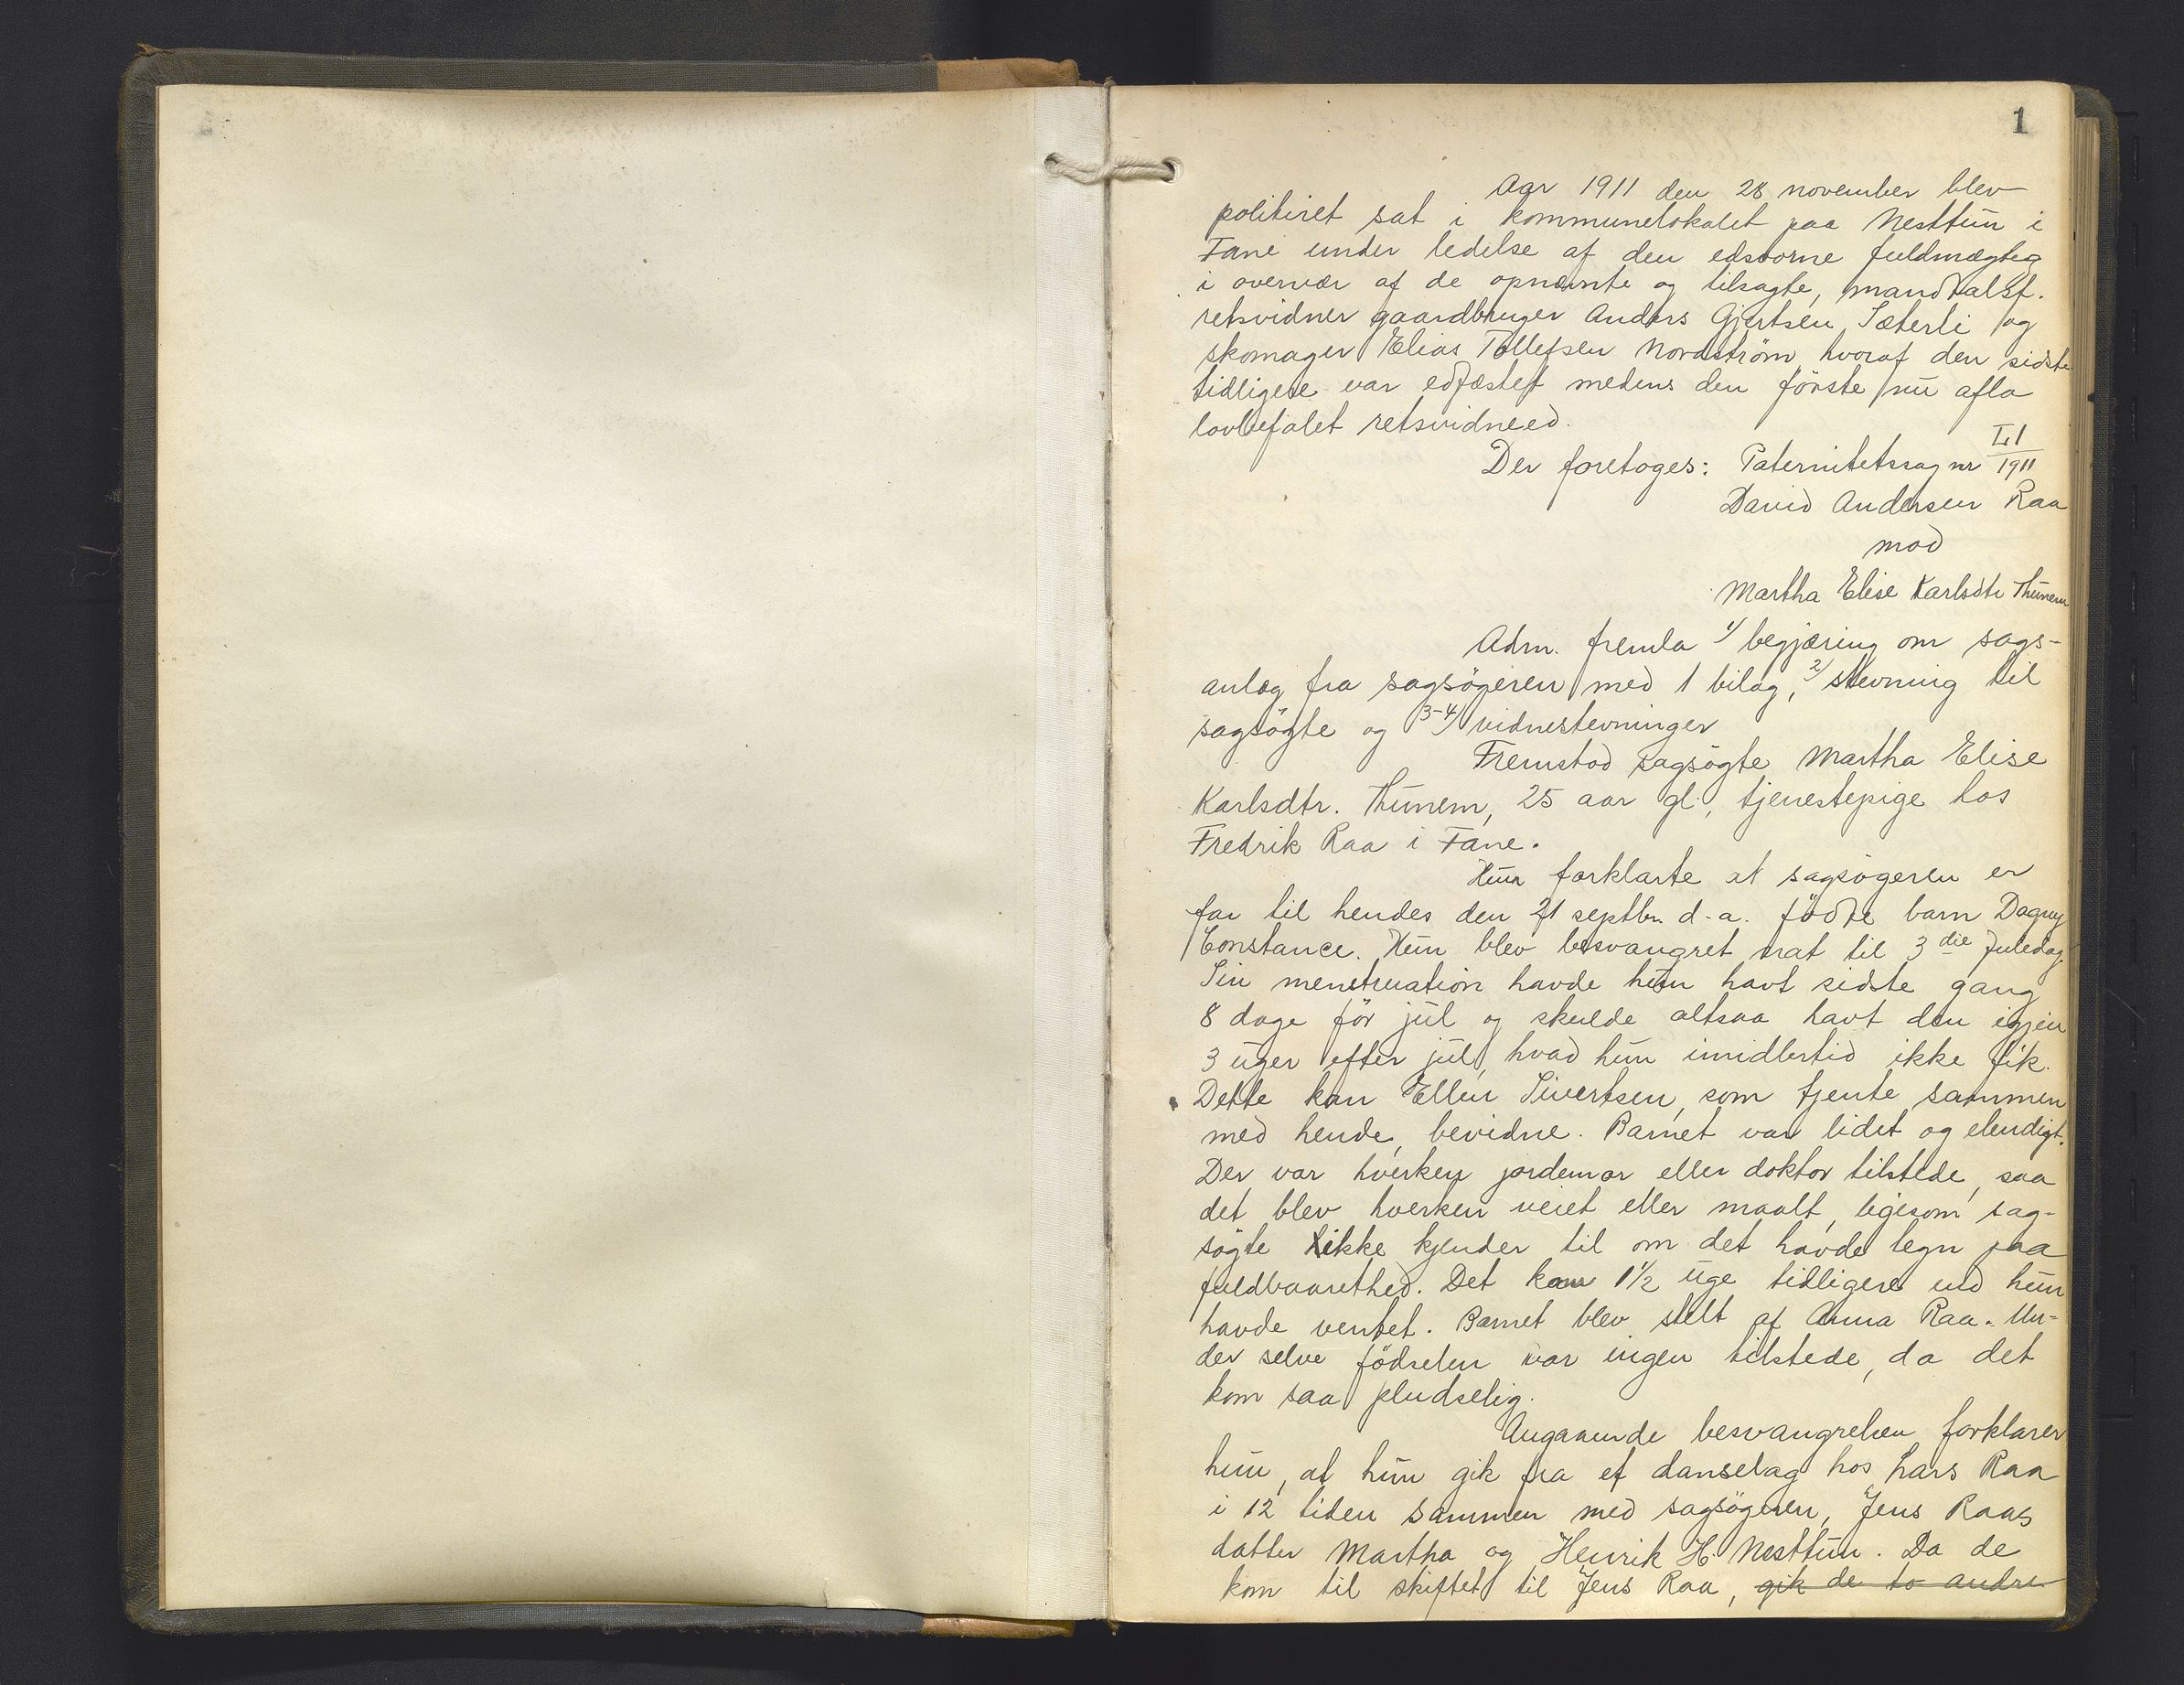 1
Aar 1911 den 28 november blev
politiret sat i kommunelokalet paa Nesttun i
Fane under ledelse af den edsvorne fuldmægtig
i overvær af de opnævnte og tilsagte, mandtalsf.
retsvidner gaardbruger Anders Gjertsen Sæterli og
skomager Elias Tollefsen Nordström, hvoraf den sidste
tidligere var edfæstet medens den förste nu afla
lovbefalet retsvidneed.
Der foretoges: Paternitetssag nr L1/1911
David Andersen Raa
mod
Martha Elise Karlsdtr Thunem
Adm. fremla 1/ begjæring om sags-
anlæg fra sagsögeren med 1 bilag, 2/ stevning til
sagsögte og 3-4/ vidnestevninger
Fremstod sagsögte Martha Elise
Karlsdtr. Thunem, 25 aar gl., tjenestepige hos
Fredrik Raa i Fane.
Hun forklarte at sagsögeren er
far til hendes den 21 septbr. d.a. födte barn Dagny
Constance. Hun blev besvangret nat til 3die juledag.
Sin menstruation havde hun havt sidste gang
8 dage för jul og skulde altsaa havt den igjen
3 uger efter jul, hvad hun imidlertid ikke fik.
Dette kan Ellen Sivertsen, som tjente sammen
med hende, bevidne. Barnet var lidet og elendigt.
Der var hverken jordemor eller doktor tilstede, saa
det blev hverken veiet eller maalt, ligesom sag-
sögte ikke kjender til om det havde tegn paa
fuldbaarethed. Det kom 1½ uge tidligere end hun
havde ventet. Barnet blev stelt af Anna Raa. Un-
der selve födselen var ingen tilstede, da det
kom saa pludselig.
Angaaende besvangrelsen forklarer
hun, at hun gik fra et danselag hos Lars Raa
i 12 tiden sammen med sagsögeren, Jens Raas
datter Martha og Henrik H. Nesttun. Da de
kom til skiftet til Jens Raa, gik de to andre